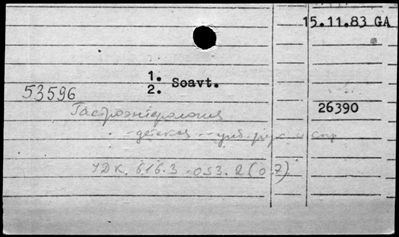 15.11.83 GA
1. Soavt.
2.
53596
Гастроэнтерология
26390
- детская -
УДК. 616.3-053.2(07)